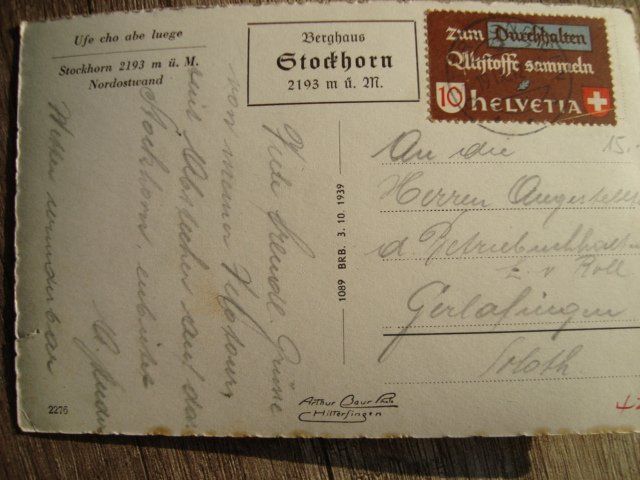 Ufe cho abe luege
Stockhorn 2193 m ü. M.
Nordostwand
Berghaus
Stockhorn
2193 m ü. M.
zum Durchhalten
Altstoffe sammeln
10 HELVETIA
15.-
An die
Herren Angestellt
d. Betriebsbuchhalt
L. v Roll
Gerlafingen
Soloth
Viele freundl. Grüsse
von meiner Velotour,
mit Abstecher auf das
Stockhorn, entbietet
Wetter wunderbar
1089 BRB. 3. 10. 1939
Arthur Baur Photo
Hilterfingen
2276